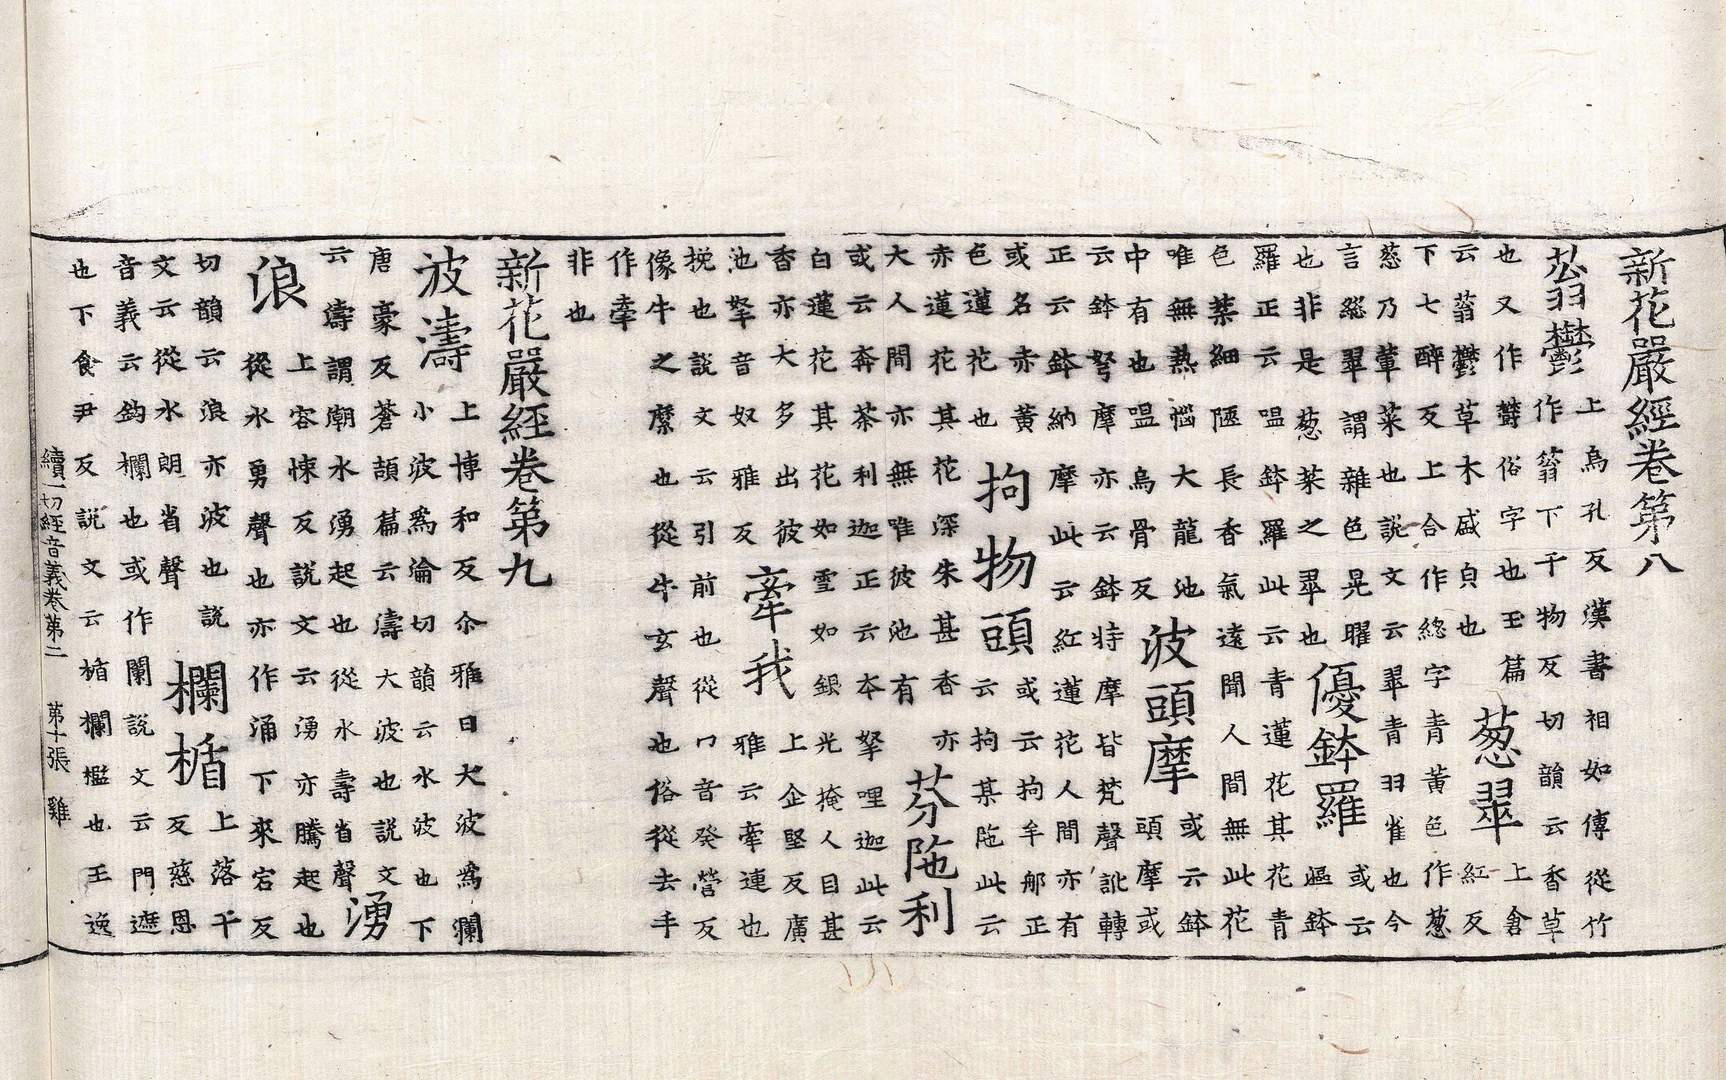 新花嚴經卷第八
蓊鬱
上烏孔反漢書相如傳從竹
作篛下千物反切韻云香草
也又作欝俗字也玉篇
云蓊鬱草木盛皃也
葱翠
上倉
紅反
下七醉反上合作緫字青黃色作葱
葱乃葷菜也說文云翠青羽雀也今
言緫翠謂雜色晃曜
也非是葱菜之翠也
優鉢羅
或云
嫗鉢
羅正云嗢鉢羅此云青蓮花其花青
色葉細陿長香氣遠聞人間無此花
唯無熱惱大龍池
中有也嗢烏骨反
波頭摩
或云鉢
頭摩或
云鉢弩摩亦云鉢特摩皆梵聲訛轉
正云鉢納摩此云紅蓮花人間亦有
或名赤黃
色蓮花也
拘物頭
或云拘牟那正
云拘某陁此云
赤蓮花其花深朱甚香亦
大人間亦無唯彼池有
芬陁利
或云奔荼利迦正云本拏哩迦此云
白蓮花其花如雪如銀光掩人目甚
香亦大多出彼
池拏音奴雅反
牽我
上企堅反廣
雅云牽連也
挽也說文云引前也從冂音癸營反
像牛之縻也從牛玄聲也俗從去手
作牽
非也
新花嚴經卷第九
波濤
上博和反尒雅曰大波爲瀾
小波爲淪切韻云水波也下
唐豪反蒼頡篇云濤大波也說文
云濤謂潮水湧起也從水壽省聲
湧
浪
上容悚反說文云湧亦騰起也
從水勇聲也亦作涌下來宕反
切韻云浪亦波也說
文云從水朗省聲
欄楯
上落干
反慈恩
音義云鈎欄也或作闌說文云門遮
也下食尹反說文云楯欄檻也王逸
續一切經音義卷第二 第十張 雞